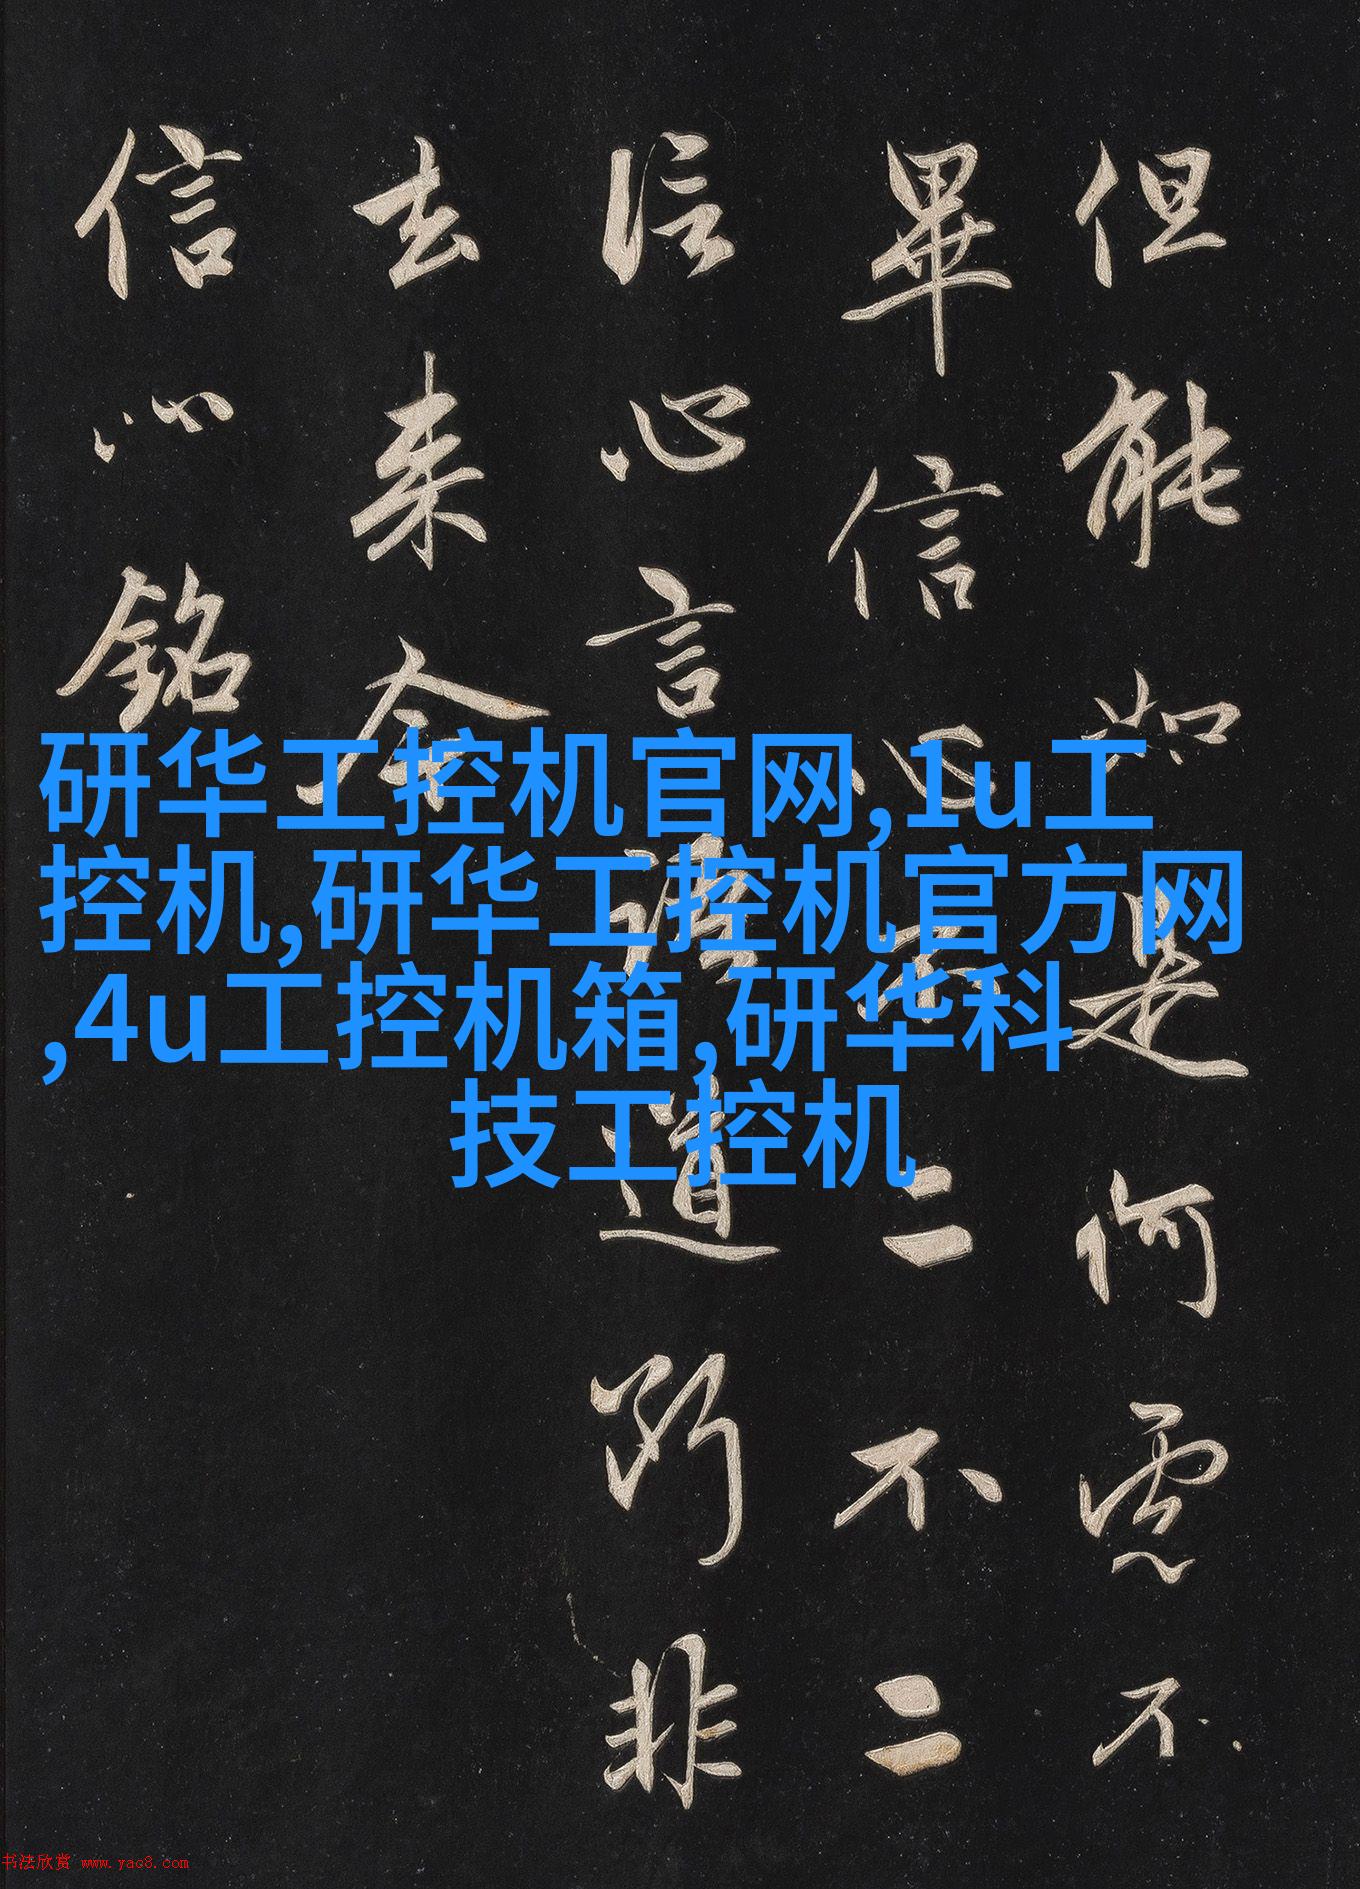 但能如是何慮不
畢信心不二不二
信心言語道斷非
去来今
信心銘
研华工控机官网,1u工
控机,研华工控机官方网
,4u工控机箱,研华科
技工控机
书法欣赏 www.yac8.com